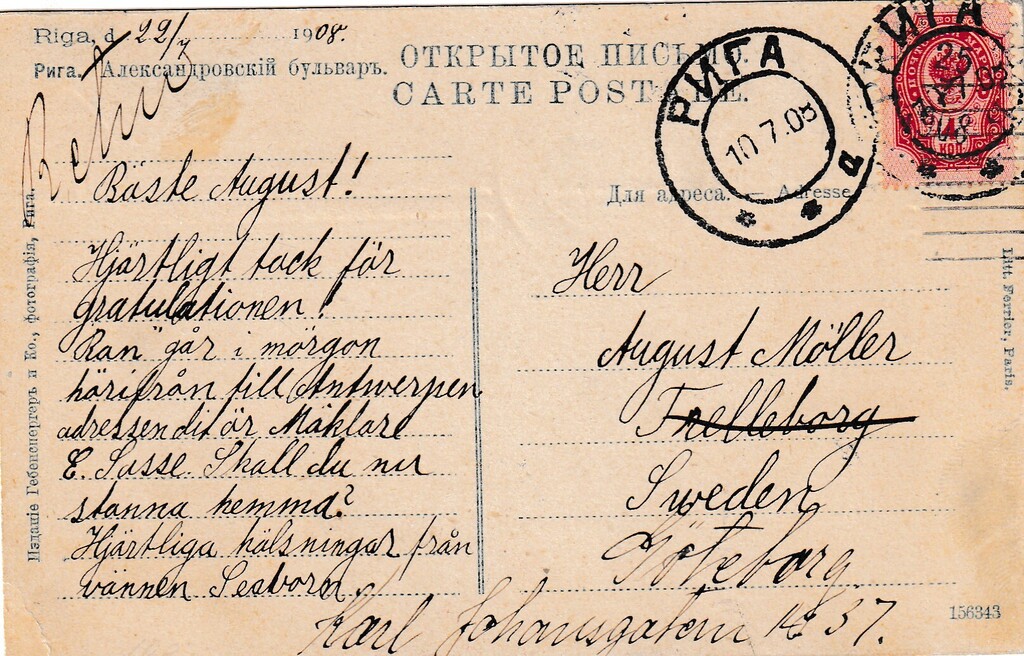 Riga, d. 22/7 1908.
Рига. Александровскій бульваръ.
ОТКРЫТОЕ ПИСЬМО.
CARTE POSTALE.
РИГА
10.7.08
РИГА
4
КОП.
Retur
Bäste August!
Hjärtligt tack för
gratulationen!
"Ran" går i mörgon
härifrån till Antwerpen
adressen dit är Mäklare
E. Sasse. Skall du nu
stanna hemma?
Hjärtliga hälsningar från
vännen Sesborn
Для адреса. — Adresse.
Herr
August Möller
Trelleborg
Sweden
Göteborg
Karl Johansgatan № 37.
Изданіе Гебенспергеръ и Ко., фотографія, Рига.
Litt. Ferrier, Paris.
156343